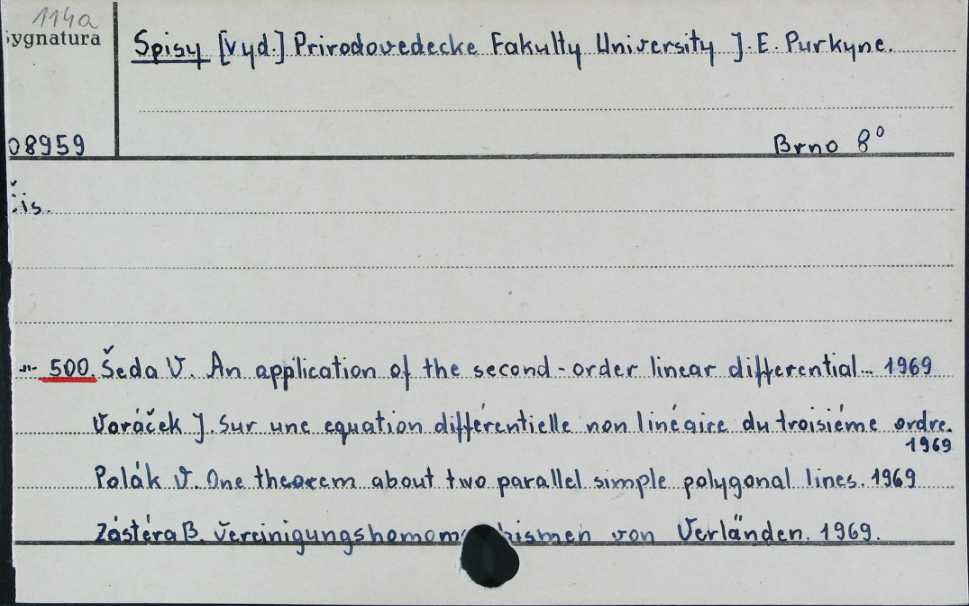 114a
Sygnatura
Spisy [vyd.] Prirodovedecke Fakulty University J. E. Purkyne.
08959
Brno 8°
Čis.
-"- 500. Šeda V. An application of the second-order linear differential... 1969
Voráček J. Sur une equation différentielle non linéaire du troisiéme ordre.
1969
Polák V. One theorem about two parallel simple polygonal lines. 1969
Zástéra B. Vereinigungshomom hismen von Verländen. 1969.